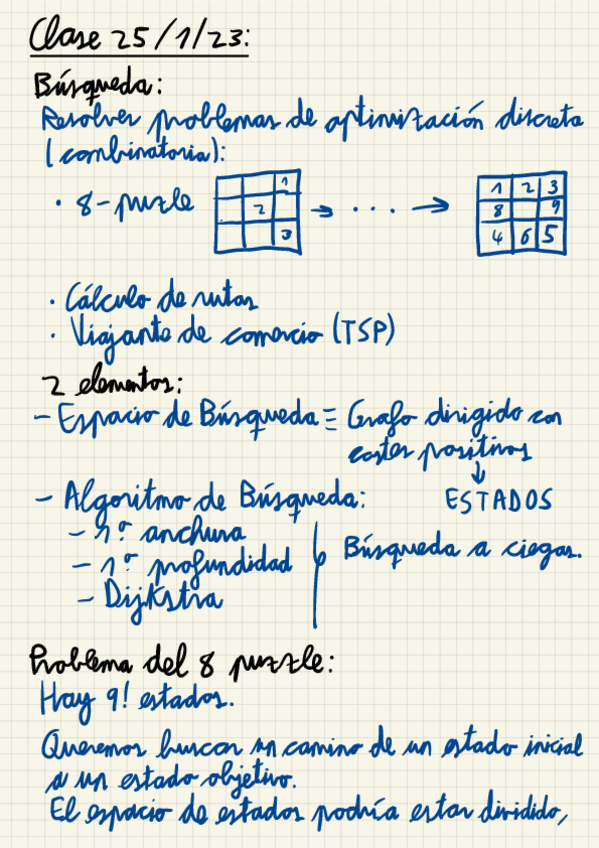 Clase 25/1/23:
Búsqueda:
Resolver problemas de optimización discreta
(combinatoria):
· 8-puzle
1
2
3
→ ... →
1 2 3
8 9
4 6 5
· Cálculo de rutas
· Viajante de comercio (TSP)
2 elementos:
- Espacio de Búsqueda ≡ Grafo dirigido con
costes positivos
↓
- Algoritmo de Búsqueda: ESTADOS
- 1º anchura
- 1º profundidad
- Dijkstra
Búsqueda a ciegas.
Problema del 8 puzzle:
Hay 9! estados.
Queremos buscar un camino de un estado inicial
a un estado objetivo.
El espacio de estados podría estar dividido,